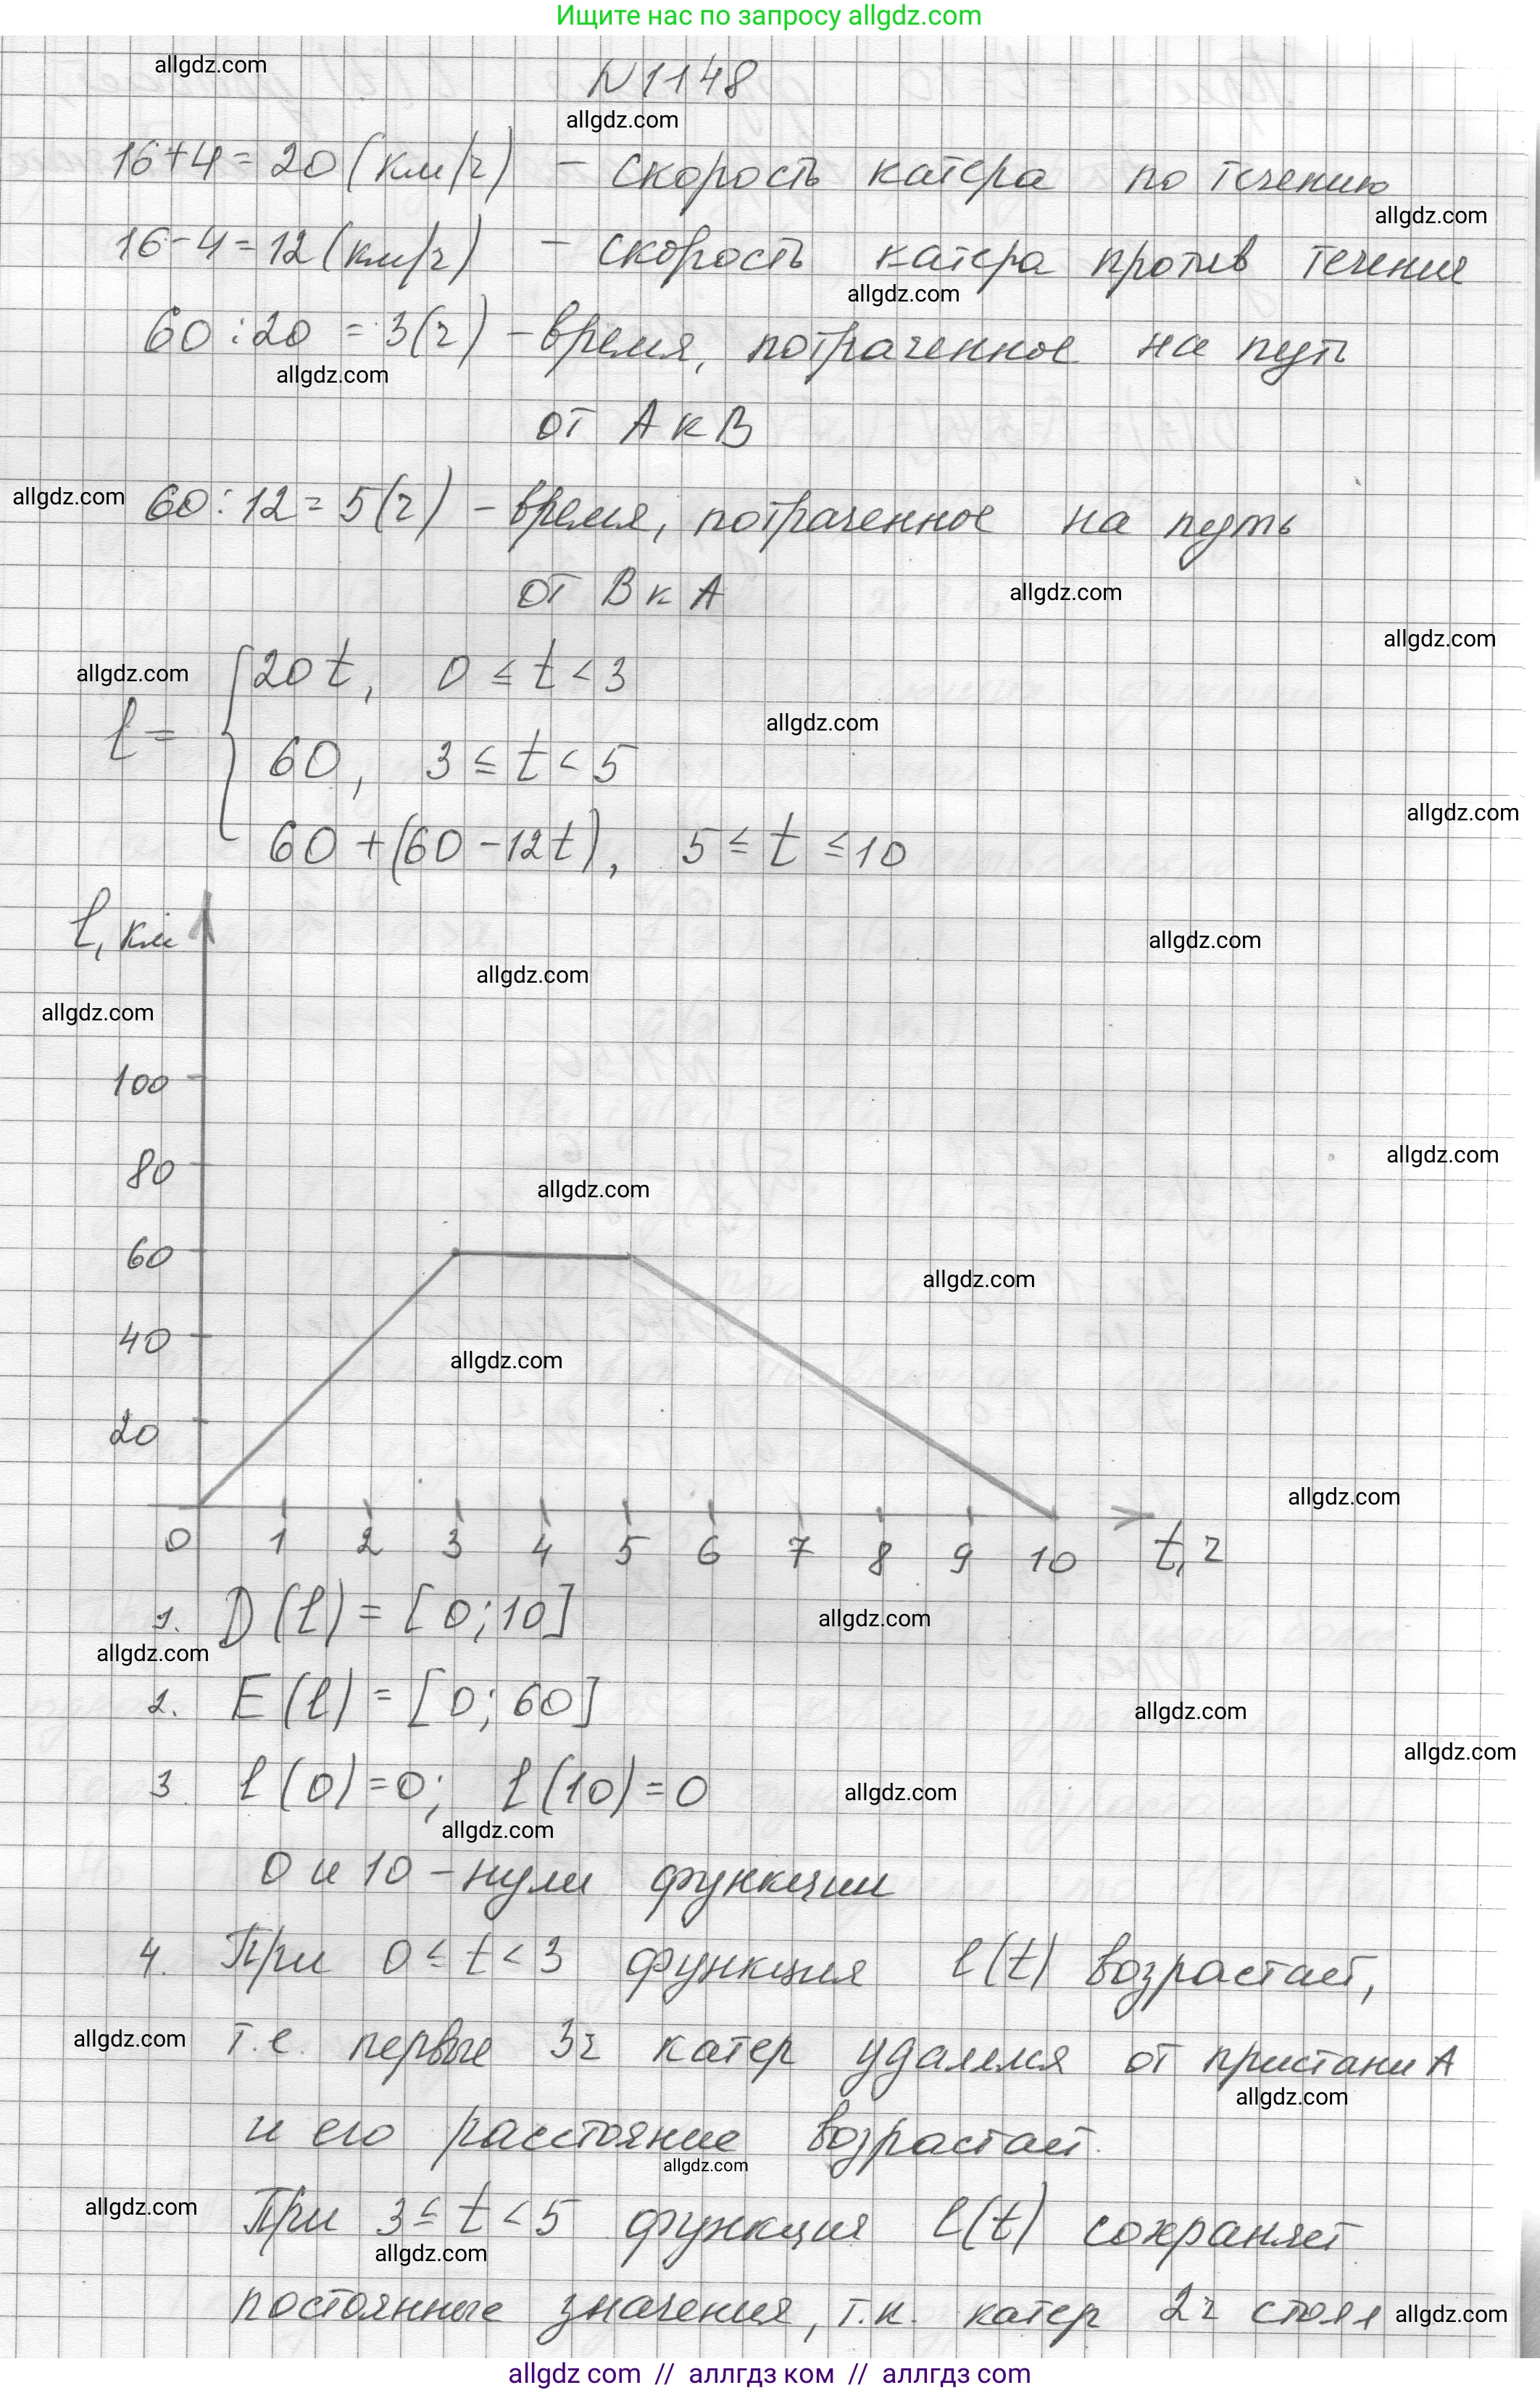 Ищите нас по запросу allgdz.com
allgdz.com
N 1148
allgdz.com
16+4=20 (км/ч) - скорость катера по течению
allgdz.com
16-4=12 (км/ч) - скорость катера против течения
allgdz.com
60:20 = 3(ч) - время, потраченное на путь
allgdz.com
от А к В
allgdz.com 60:12=5(ч) - время, потраченное на путь
от В к А
allgdz.com
allgdz.com
allgdz.com
20t, 0 ≤ t < 3
allgdz.com
l =
60, 3 ≤ t < 5
allgdz.com
60+(60-12t), 5 ≤ t ≤ 10
l, км
allgdz.com
allgdz.com
allgdz.com
100
80
allgdz.com
allgdz.com
60
allgdz.com
40
allgdz.com
20
allgdz.com
0 1 2 3 4 5 6 7 8 9 10 t, ч
1. D(l) = [0;10]
allgdz.com
allgdz.com
2. E(l) = [0; 60]
allgdz.com
allgdz.com
3 l(0)=0; l(10)=0
allgdz.com
allgdz.com
0 и 10 - нули функции
4. При 0 ≤ t < 3 функция l(t) возрастает,
allgdz.com
т.е. первые 3ч катер удалялся от пристани А
allgdz.com
и его расстояние возрастает.
allgdz.com
allgdz.com
При 3 ≤ t < 5 функция l(t) сохраняет
allgdz.com
постоянные значения, т.к. катер 2ч стоял
allgdz.com
allgdz com // аллгдз ком // аллгдз com